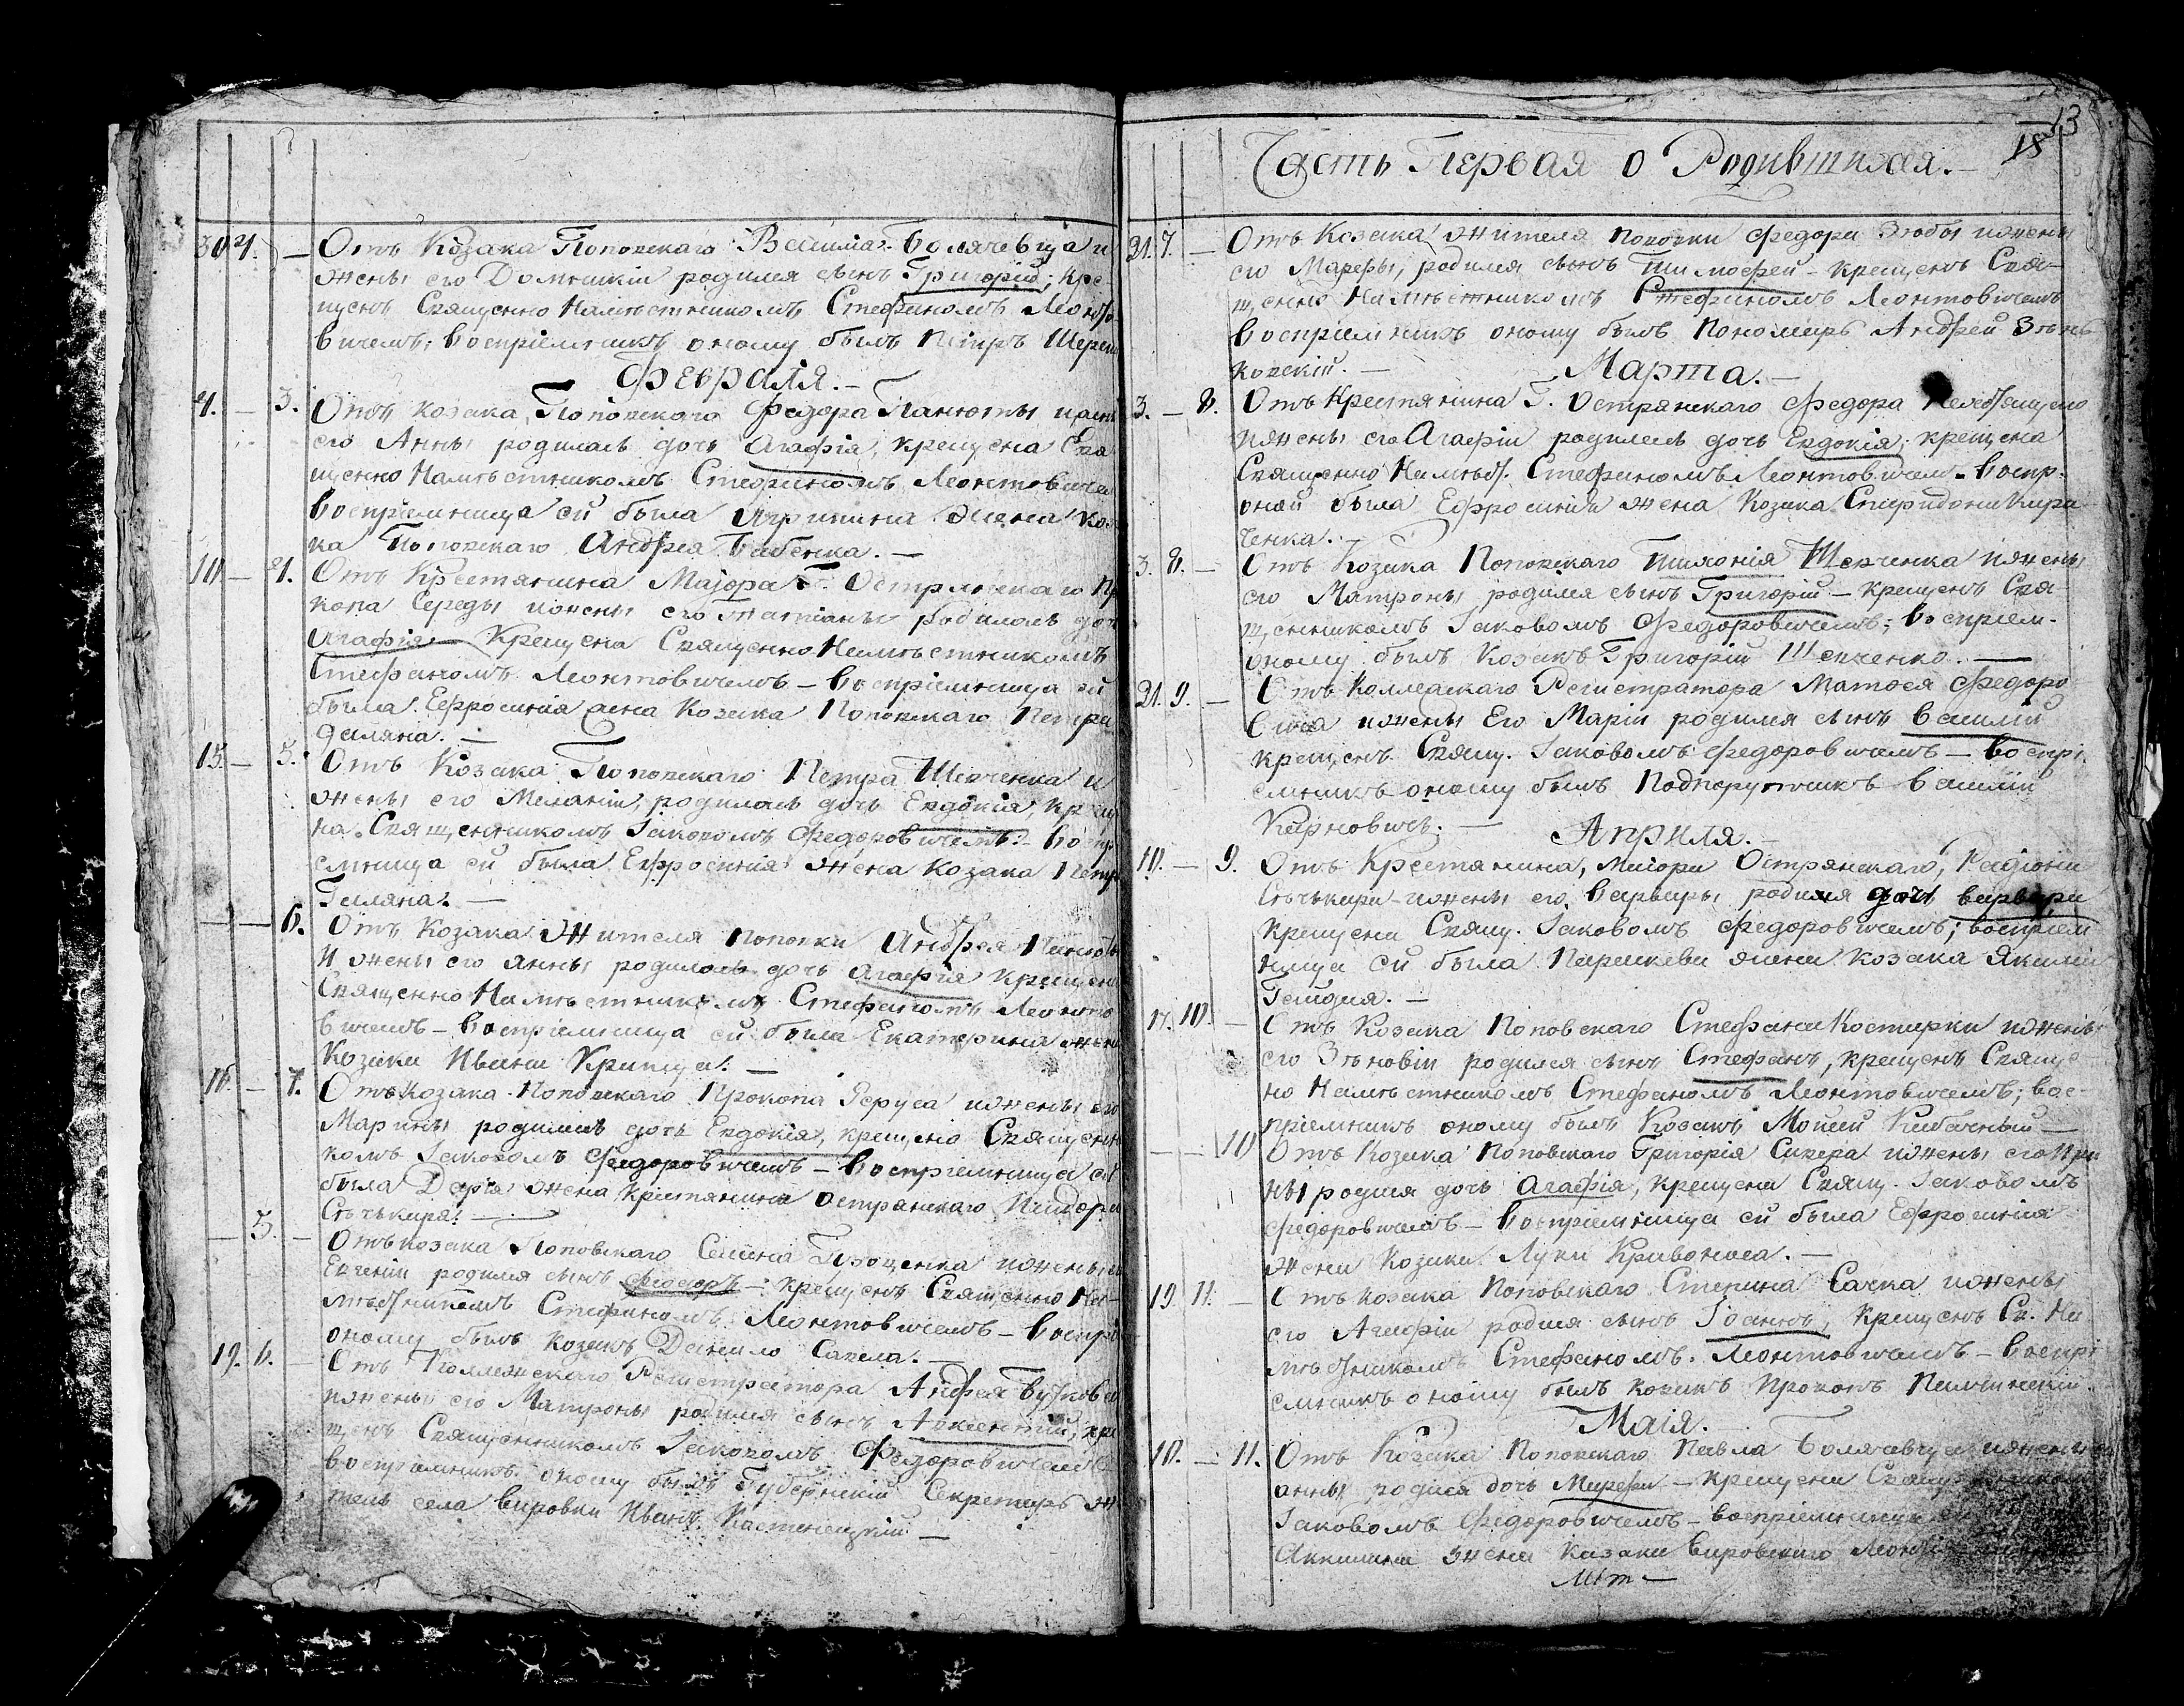 30 4. — Отъ Козака Поповскаго Василія Болячевца и
жены его Домникіи родился сынъ Григорій; кре-
щенъ Священно Намѣстникомъ Стефаномъ Леонто-
вичемъ; воспріемникъ оному былъ Петръ
Февраля. —
4. — 3. Отъ козака Поповскаго Федора Панюты и жены
его Анны родилась дочь Агафія, крещена Свя
щенно Намѣстникомъ Стефаномъ Леонтовичем
воспріемница ей была Агрипина жена коза
ка Поповскаго Андрея Бабенка. —
10 — 4. Отъ Крестянина Маіора Г. Острянскаго Про
копа Середы и жены его Татіаны родилась доч
Агафія — Крещена Священно Намѣстникомъ
Стефаномъ Леонтовичемъ — Воспріемница ей
была Ефросинія жена Козака Поповскаго Петра
Галяна. —
15. — 5. Отъ Козака Поповскаго Петра Шевченка и
жены его Меланіи, родилась дочь Евдокія, крещ
на Священникомъ Іаковомъ Федоровичемъ — Воспр
емница ей была Ефросинія жена Козака Петр
Галяна. —
— — 6. Отъ Козака жителя Поповки Андрея Панют
и жены его Анны родилась дочь Агафія крещен
Священно Намѣстникомъ Стефаномъ Леонто
вичемъ — Воспріемница ей была Екатерина жен
Козака Ивана Крипца. —
16. — 7. Отъ Козака Поповскаго Прокопа Геруса и жены его
Марины родилась дочь Евдокія, крещено Священни
комъ Іаковомъ Федоровичемъ — Воспріемница ей
была Дарія жена крестянина Острянскаго Исидора
Стъчкаря. —
— 5. — Отъ козака Поповскаго Семена Гроценка и жены
Евгеніи родился сынъ Феодоръ — крещенъ Священно На-
мѣстникомъ Стефаномъ Леонтовичемъ — Воспрі
оному былъ козакъ Данило Савела. —
19. 6. — Отъ Коллежскаго Регистратора Андрея
и жены его Матроны родился сынъ Авксентій, кре
щенъ Священникомъ Іаковомъ Федоровичемъ
воспріемникъ оному былъ Губернскій Секретарь жи
тель села Вировки Иванъ Костенецкій —
13
18
Часть Первая о Родившихся. —
21. 7. — Отъ Козака жителя Поповки Федора Зюбы и жены
его Марфы, родился сынъ Тимофей — крещенъ Свя-
щенно Намѣстникомъ Стефаномъ Леонтовичемъ
воспріемникъ оному былъ Пономарь Андрей Зѣнь
ковскій. —
Марта. —
3. — 8. Отъ Крестянина Г. Острянскаго Федора
и жены его Агафіи родилась дочь Евдокія; крещена
Священно Намѣст. Стефаномъ Леонтовичем — Воспр.
оной была Ефросинія жена Козака Спиридона Кири
ченка. —
3. 8. — Отъ Козака Поповскаго Тимофія Шевченка и жены
его Матроны родился сынъ Григорій — крещенъ Свя-
щенникомъ Іаковомъ Федоровичемъ; Воспріем.
оному былъ Козакъ Григорій Шевченко. —
21. 9. — Отъ Коллежскаго Регистратора Матфея Федоро
вича и жены Его Маріи родился сынъ Василій
крещенъ Свящ. Іаковомъ Федоровичемъ — Воспрі
емникъ оному былъ Подпоручикъ Василій
Карновичъ. —
Априля. —
10. — 9. Отъ Крестянина, Маіора Острянскаго, Радіона
Стъчкаря и жены его Варвары родился дочь Варвара
Крещена Свящ. Іаковомъ Федоровичемъ; воспріем
ница ей была Параскева жена козака Якима
Гайдея. —
17. 10. — Отъ Козака Поповскаго Стефана Костирки и жены
его Зѣновіи родился сынъ Стефанъ, крещенъ Свяще
но Намѣстникомъ Стефаномъ Леонтовичемъ; вос-
пріемникъ оному былъ Козакъ Моисей Кибачный —
— — 10 Отъ Козака Поповскаго Григорія Сквера и жены его Ири
ны родися дочь Агафія, крещена Свящ. Іаковомъ
Федоровичемъ — Воспріемница ей была Ефросинія
жена Козака Луки Кривоноса. —
19 11. — Отъ козака Поповскаго Стерина Сачка и жены
его Агафіи родися сынъ Іоаннъ, крещенъ Св. На
мѣстникомъ Стефаномъ Леонтовичемъ — Воспрі
емникъ оному былъ козакъ Прокопъ
Маія.
10. — 11. Отъ Козака Поповскаго Павла Болячевца и жены его
Анны родися дочь Марфа — крещена Священникомъ
Іаковомъ Федоровичемъ — воспріемница ей
Акилина жена казака Вировскаго Леонтія